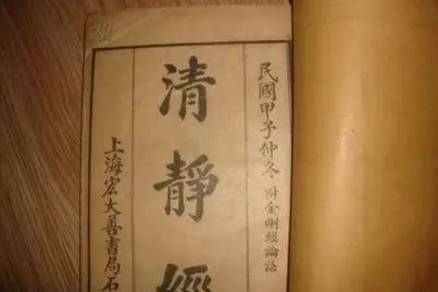 民國甲子仲冬 附金剛經論語
清靜經
上海宏大善書局石